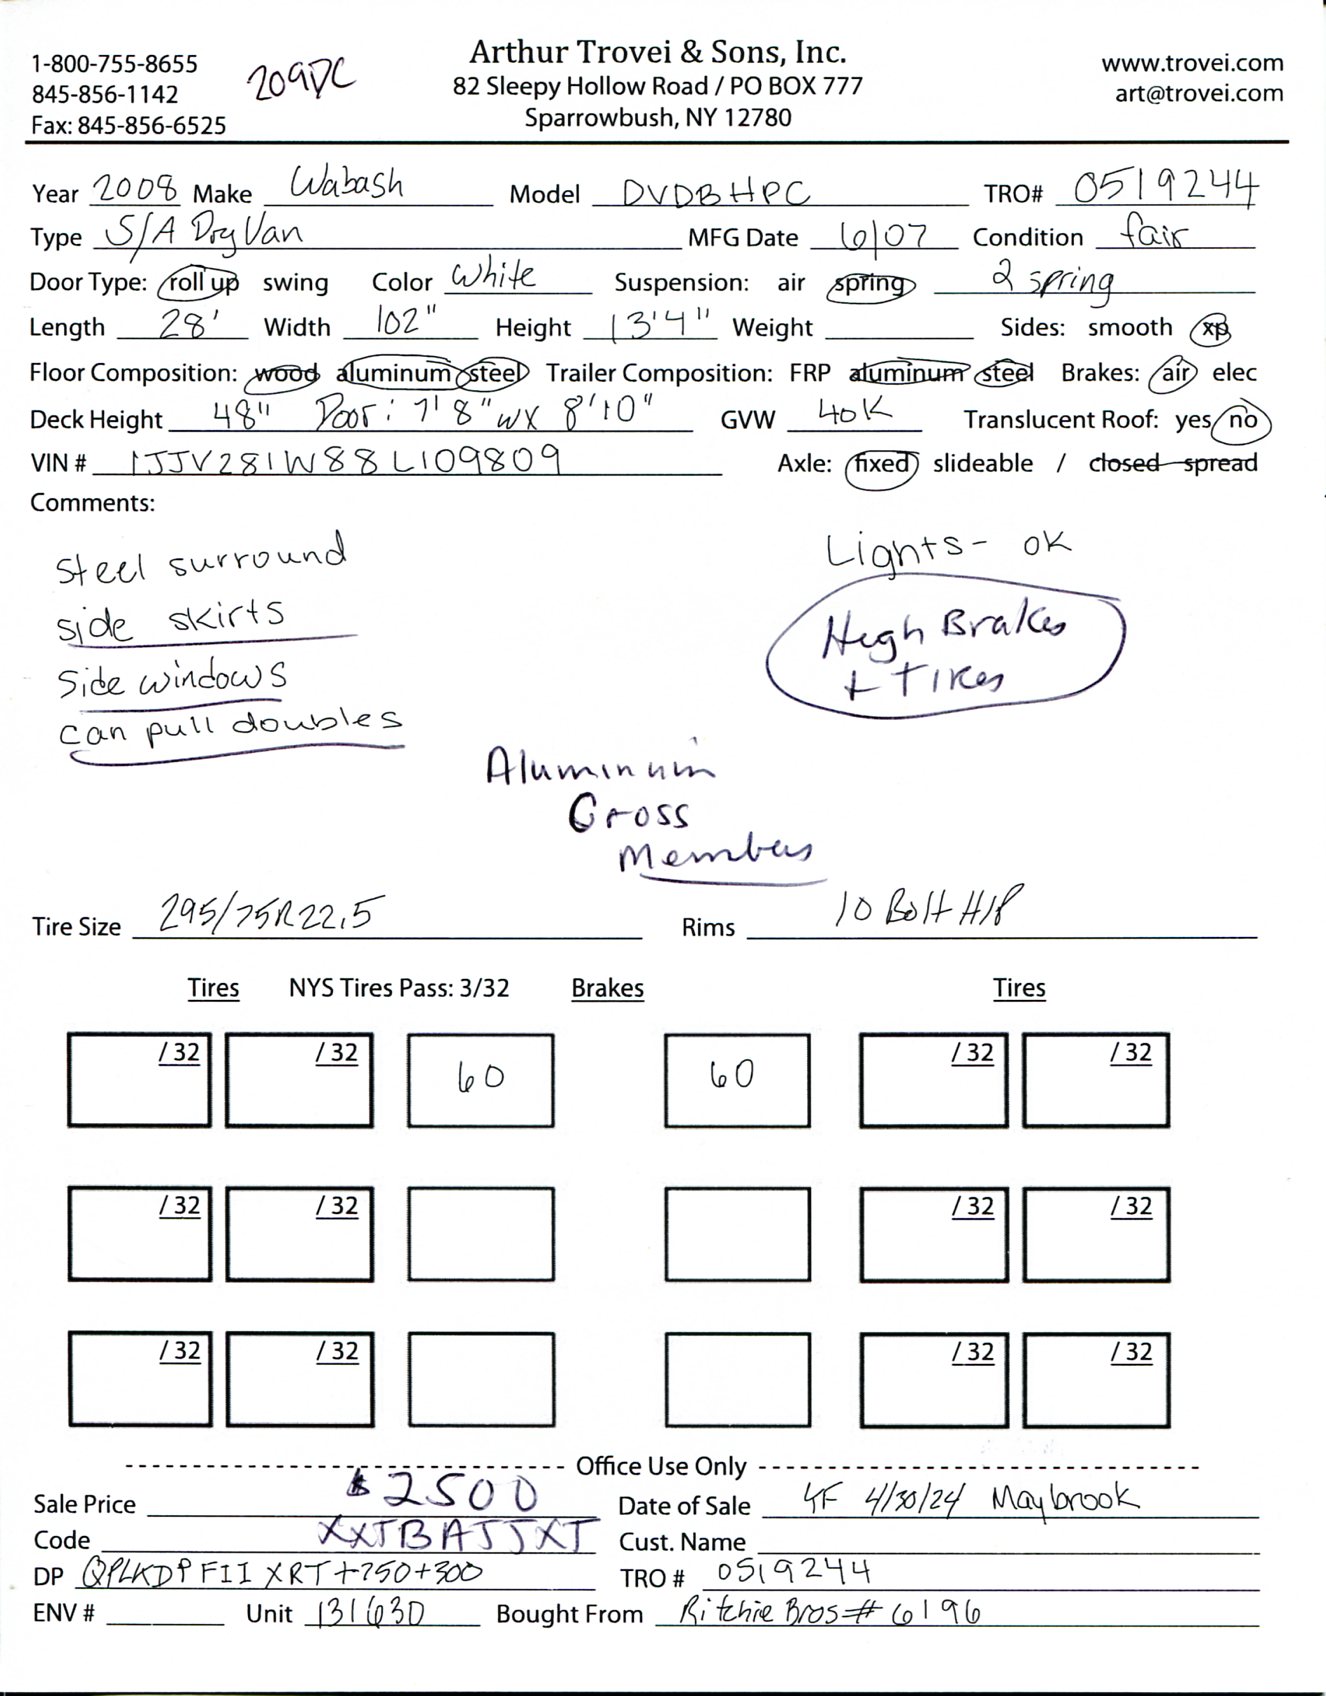 1-800-755-8655
845-856-1142
Fax: 845-856-6525
209DC
Arthur Trovei & Sons, Inc.
82 Sleepy Hollow Road / PO BOX 777
Sparrowbush, NY 12780
www.trovei.com
art@trovei.com
Year 2008 Make Wabash Model DVDBHPC TRO# 0519244
Type S/A Dry Van MFG Date 6/07 Condition fair
Door Type: roll up swing Color White Suspension: air spring 2 spring
Length 28' Width 102" Height 13'4" Weight Sides: smooth xp
Floor Composition: wood aluminum steel Trailer Composition: FRP aluminum steel Brakes: air elec
Deck Height 48" Door: 7'8"w x 8'10" GVW 40K Translucent Roof: yes no
VIN # 1JJV281W88L109809 Axle: fixed slideable / closed spread
Comments:
steel surround
side skirts
side windows
can pull doubles
Lights- ok
High Brakes
+ Tires
Aluminum
Cross
Members
Tire Size 295/75R22.5 Rims 10 Bolt H/P
Tires NYS Tires Pass: 3/32 Brakes Tires
/ 32 / 32 60 60 / 32 / 32
/ 32 / 32 / 32 / 32
/ 32 / 32 / 32 / 32
Office Use Only
Sale Price $2500 Date of Sale YF 4/30/24 Maybrook
Code XXTBATJXT Cust. Name
DP QPLKDPFII XRT+750+300 TRO # 0519244
ENV # Unit 131630 Bought From Ritchie Bros # 6196